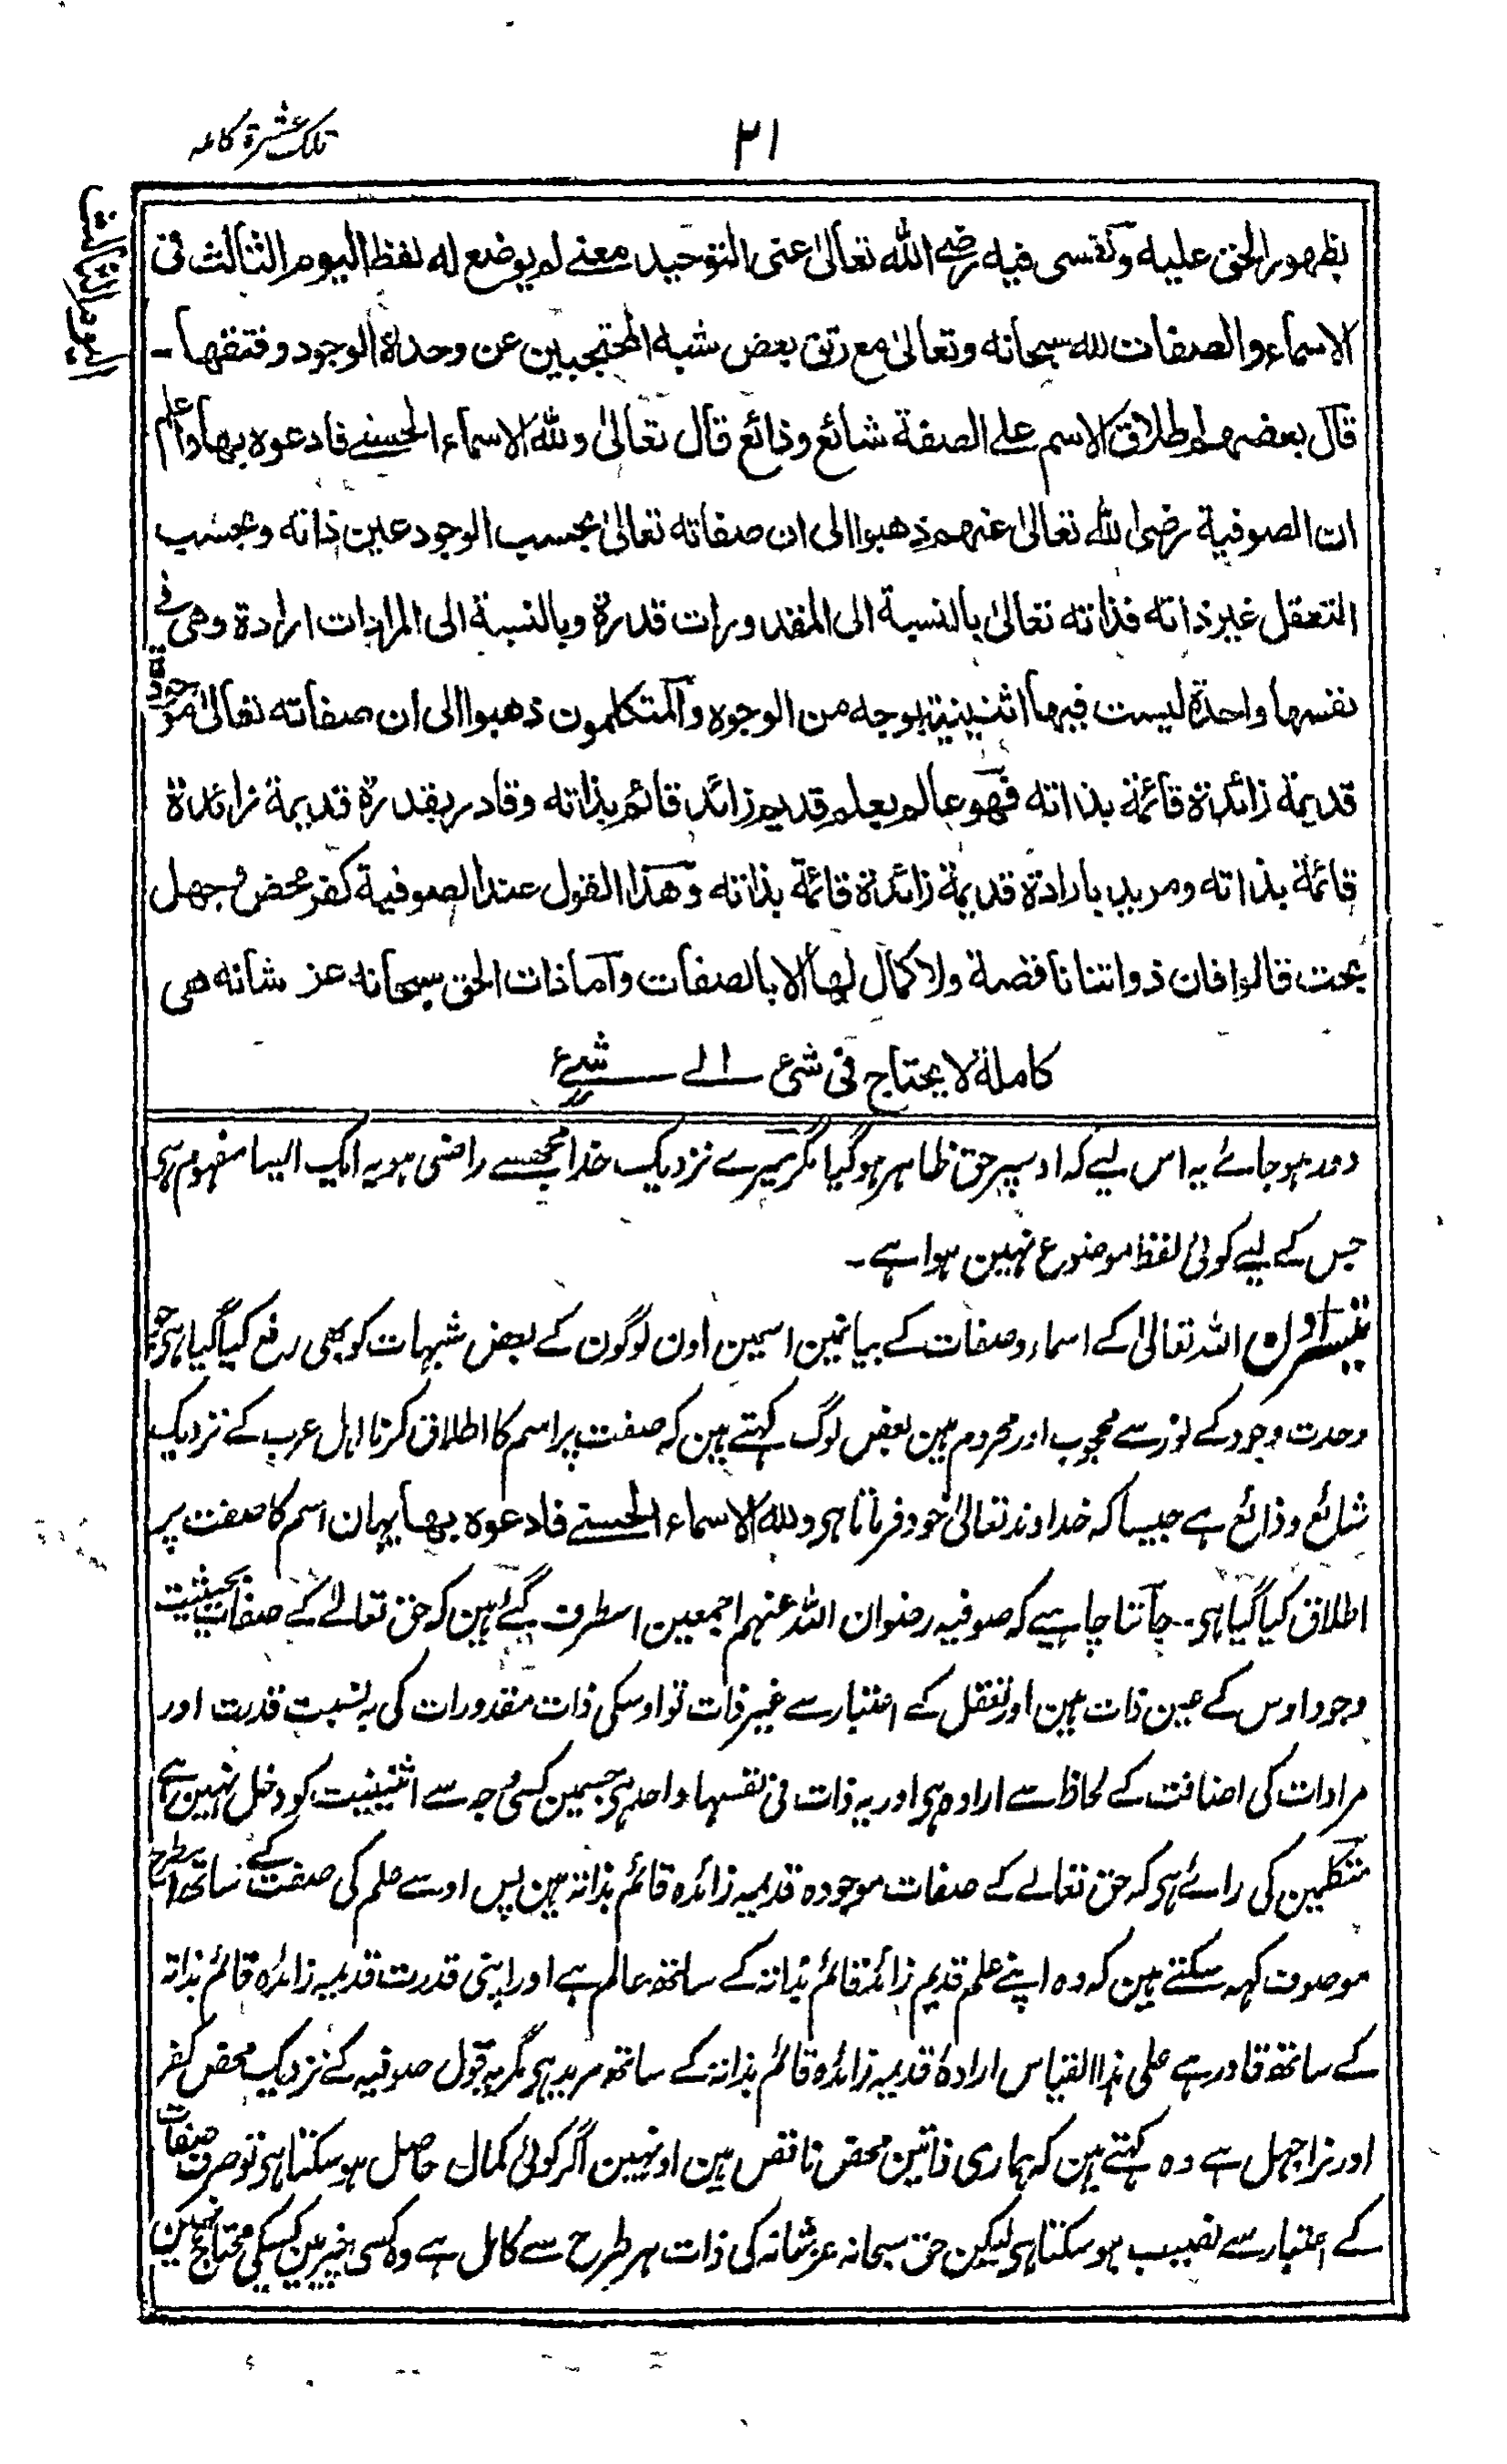 تلک عشرۃ کاملہ
۲۱
الیوم الثالث
بظهور الحق علیه وتفسی فیه رضی الله تعالیٰ عنی التوحید معنے لم یوضع له لفظ الیوم الثالث فی
الاسماء والصفات لله سبحانه وتعالیٰ مع رتق بعض شبه المحتجبین عن وحدة الوجود وفتقها -
قال بعضهم اطلاق الاسم علی الصفة شائع وذائع قال تعالیٰ ولله الاسماء الحسنے فادعوه بها واعلم
ان الصوفیة رضی الله تعالیٰ عنهم ذهبوا الی ان صفاته تعالیٰ بحسب الوجود عین ذاته وبحسب
التعقل غیر ذاته فذاته تعالیٰ بالنسبة الی المقدورات قدرة وبالنسبة الی المرادات ارادة وهی فی
نفسها واحدة لیست فیها اثنینیة بوجه من الوجوه والمتکلمون ذهبوا الی ان صفاته تعالیٰ موجودة
قدیمة زائدة قائمة بذاته فهو عالم بعلم قدیم زائد قائم بذاته وقادر بقدرة قدیمة زائدة
قائمة بذاته ومرید بارادة قدیمة زائدة قائمة بذاته وهذا القول عند الصوفیة کفر محض وجهل
بحت قالوا فان ذواتنا ناقصة ولا کمال لها الا بالصفات واما ذات الحق سبحانه عز شانه هی
کاملة لا یحتاج فی شیء الے شیء
دور ہو جائے یہ اس لیے کہ اوسپر حق ظاہر ہو گیا مگر میرے نزدیک خدا مجھسے راضی ہو یہ ایک ایسا مفہوم ہی
جس کے لیے کوئی لفظ موضوع نہین ہوا ہے -
تیسرادن اللہ تعالیٰ کے اسماء وصفات کے بیانمین اسمین اون لوگون کے بعض شبہات کو بھی رفع کیا گیا ہی جو
وحدت وجود کے نور سے محجوب اور محروم ہین بعض لوگ کہتے ہین کہ صفت پر اسم کا اطلاق کرنا اہل عرب کے نزدیک
شائع و ذائع ہے جیسا کہ خداوند تعالیٰ خود فرماتا ہی وللہ الاسماء الحسنے فادعوہ بہا یہان اسم کا صفت پر
اطلاق کیا گیا ہی - جاننا چاہیے کہ صوفیہ رضوان اللہ عنہم اجمعین اسطرف گئے ہین کہ حق تعالے کے صفات بحیثیت
وجود اوس کے عین ذات ہین اور تعقل کے اعتبار سے غیر ذات تو اوسکی ذات مقدورات کی بہ نسبت قدرت اور
مرادات کی اضافت کے لحاظ سے ارادہ ہی اور یہ ذات فی نفسہا واحد ہی جسمین کسی وجہ سے اثنینیت کو دخل نہین ہے
متکلمین کی رائے ہی کہ حق تعالے کے صفات موجودہ قدیمہ زائدہ قائم بذاتہ ہین پس اوسے علم کی صفت کے ساتھ اسطرح
موصوف کہہ سکتے ہین کہ وہ اپنے علم قدیم زائد قائم بذاتہ کے ساتھ عالم ہے اور اپنی قدرت قدیمہ زائدہ قائم بذاتہ
کے ساتھ قادر ہے علی ہذا القیاس ارادۂ قدیمہ زائدہ قائم بذاتہ کے ساتھ مرید ہی مگر یہ قول صوفیہ کے نزدیک محض کفر
اور نرا جہل ہے وہ کہتے ہین کہ ہماری ذاتین محض ناقص ہین اونہین اگر کوئی کمال حاصل ہو سکتا ہی تو صرف صفات
کے اعتبار سے نصیب ہو سکتا ہی لیکن حق سبحانہ عز شانہ کی ذات ہر طرح سے کامل ہے وہ کسی چیز مین کسیکی محتاج نہین